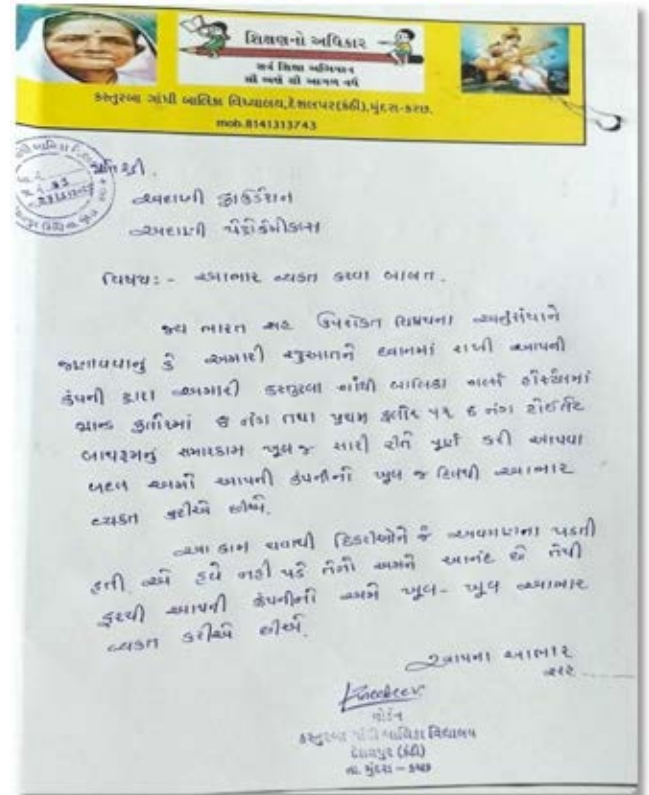 શિક્ષણનો અધિકાર
સર્વ શિક્ષા અભિયાન
સૌ ભણે સૌ આગળ વધે
કસ્તુરબા ગાંધી બાલિકા વિધ્યાલય,દેશલપર(કંઠી),મુંદરા-કચ્છ.
mob.8141313743
પ્રતિ શ્રી.
અદાણી ફાઉંડેશન
અદાણી પેટ્રોકેમીકલ્સ
વિષય:- આભાર વ્યકત કરવા બાબત.
જય ભારત સહ ઉપરોકત વિષયના અનુસંધાને
જણાવવાનું કે અમારી રજુઆતને ધ્યાનમાં રાખી આપની
કંપની દ્વારા અમારી કસ્તુરબા ગાંધી બાલિકા ગર્લ્સ હોસ્ટેલમાં
ગ્રાઉન્ડ ફ્લોરમાં નંગ તથા પ્રથમ ફ્લોર પર ૬ નંગ ટોઈલેટ
બાથરૂમનું સમારકામ ખુબ જ સારી રીતે પૂર્ણ કરી આપવા
બદલ અમો આપની કંપનીનો ખુબ જ દિલથી આભાર
વ્યકત કરીએ છીએ.
આ કામ થવાથી દિકરીઓને જે અવગણના પડતી
હતી એ હવે નહી પડે તેનો અમને આનંદ છે તેથી
ફરથી આપની કંપનીનો અમે ખુબ-ખુબ આભાર
વ્યકત કરીએ છીએ.
આપના આભાર
સહ
વોર્ડન
કસ્તુરબા ગાંધી બાલિકા વિદ્યાલય
દેશલપુર (કંઠી)
તા. મુંદરા – કચ્છ